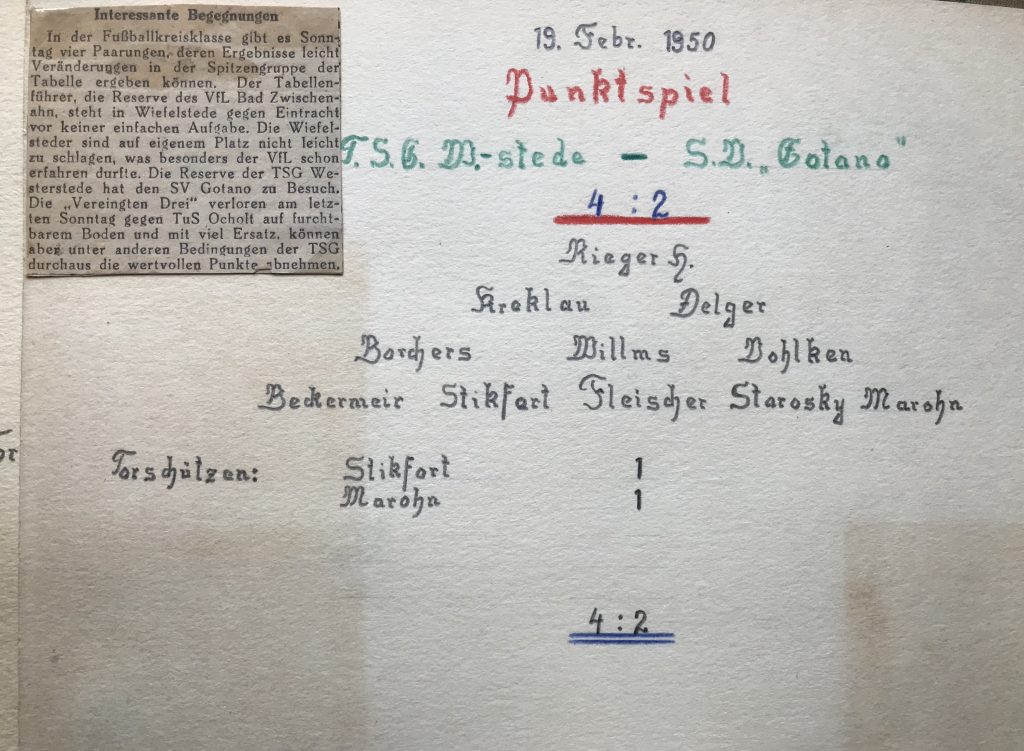 Interessante Begegnungen
In der Fußballkreisklasse gibt es Sonn-
tag vier Paarungen, deren Ergebnisse leicht
Veränderungen in der Spitzengruppe der
Tabelle ergeben können. Der Tabellen-
führer, die Reserve des VfL Bad Zwischen-
ahn, steht in Wiefelstede gegen Eintracht
vor keiner einfachen Aufgabe. Die Wiefel-
steder sind auf eigenem Platz nicht leicht
zu schlagen, was besonders der VfL schon
erfahren durfte. Die Reserve der TSG We-
sterstede hat den SV Gotano zu Besuch.
Die „Vereingten Drei" verloren am letz-
ten Sonntag gegen TuS Ocholt auf furcht-
barem Boden und mit viel Ersatz, können
aber unter anderen Bedingungen der TSG
durchaus die wertvollen Punkte abnehmen.
19. Febr. 1950
Punktspiel
T.S.G. W.-stede – S.V. „Gotano"
4 : 2
Rieger H.
Kroklau Delger
Borchers Willms Bohlken
Beckermeir Stikfort Fleischer Starosky Marohn
Torschützen: Stikfort 1
Marohn 1
4 : 2